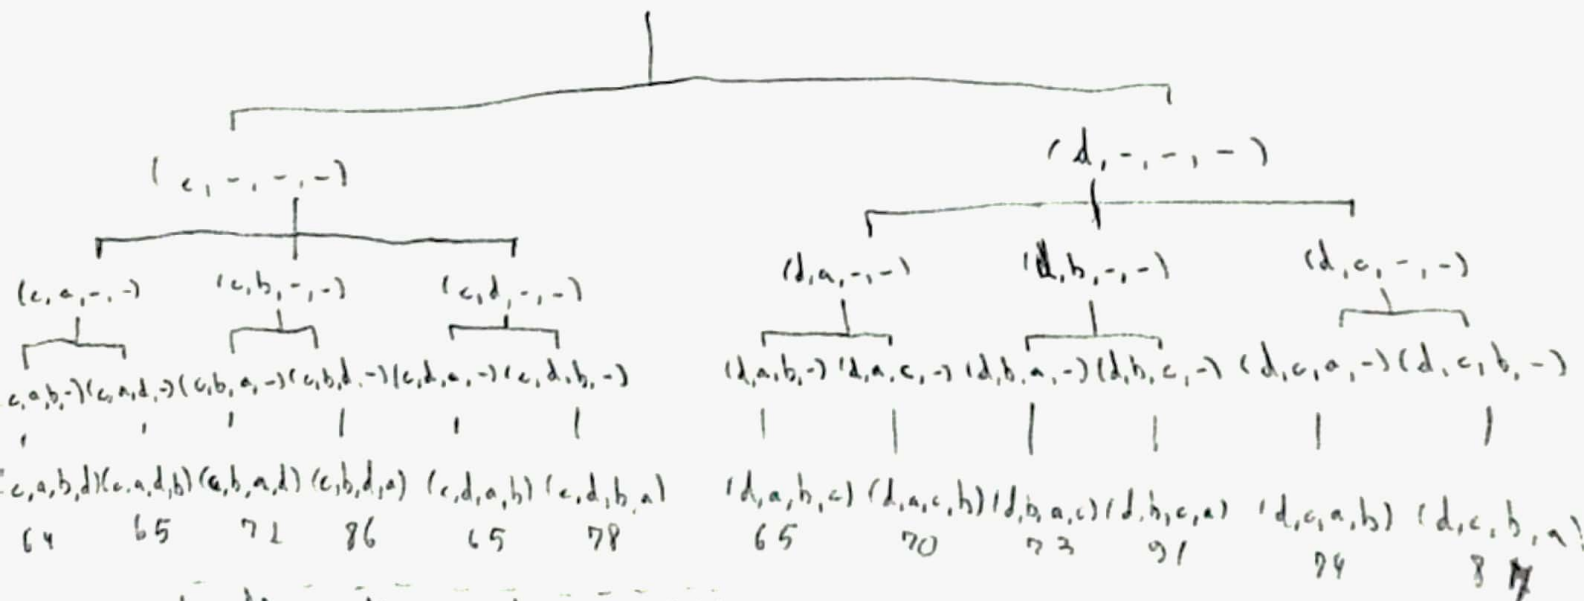 (c,-,-,-) (d,-,-,-)
(c,a,-,-) (c,b,-,-) (c,d,-,-) (d,a,-,-) (d,b,-,-) (d,c,-,-)
c,a,b,-) (c,a,d,-) (c,b,a,-) (c,b,d,-) (c,d,a,-) (c,d,b,-) (d,a,b,-) (d,a,c,-) (d,b,a,-) (d,b,c,-) (d,c,a,-) (d,c,b,-)
(c,a,b,d) (c,a,d,b) (c,b,a,d) (c,b,d,a) (c,d,a,b) (c,d,b,a) (d,a,b,c) (d,a,c,b) (d,b,a,c) (d,b,c,a) (d,c,a,b) (d,c,b,a)
64 65 71 86 65 78 65 70 73 91 74